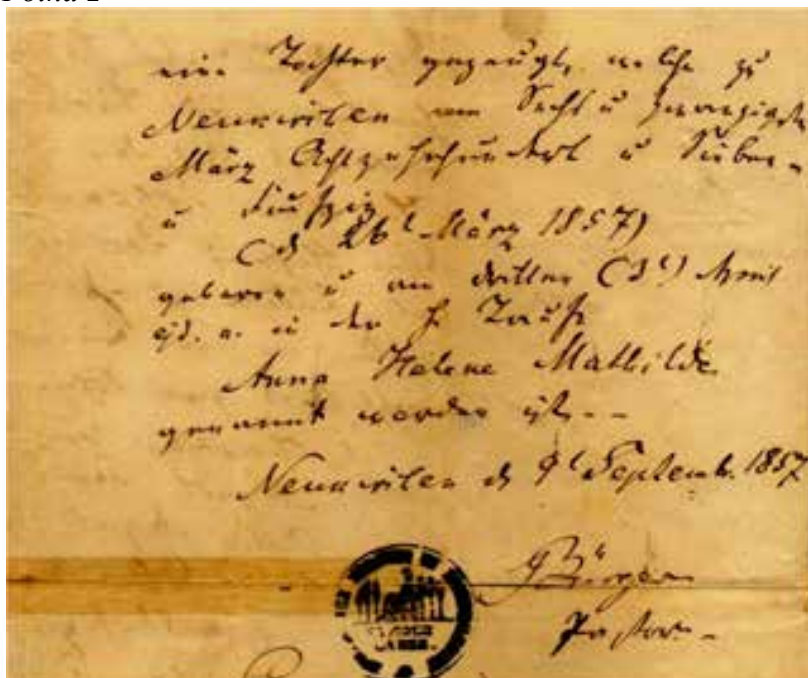 eine Tochter gezeugt, welche zu
am Sechs u zwanzigsten
März Achtzehnhundert u Sieben
u fünfzig
(d 26t März 1857)
geboren u am dritten (3t) April
ejd. a. in der h. Taufe
Anna Helene Mathilde
genannt worden ist. -
d 9t Septemb. 1857
Bürger
Pastor